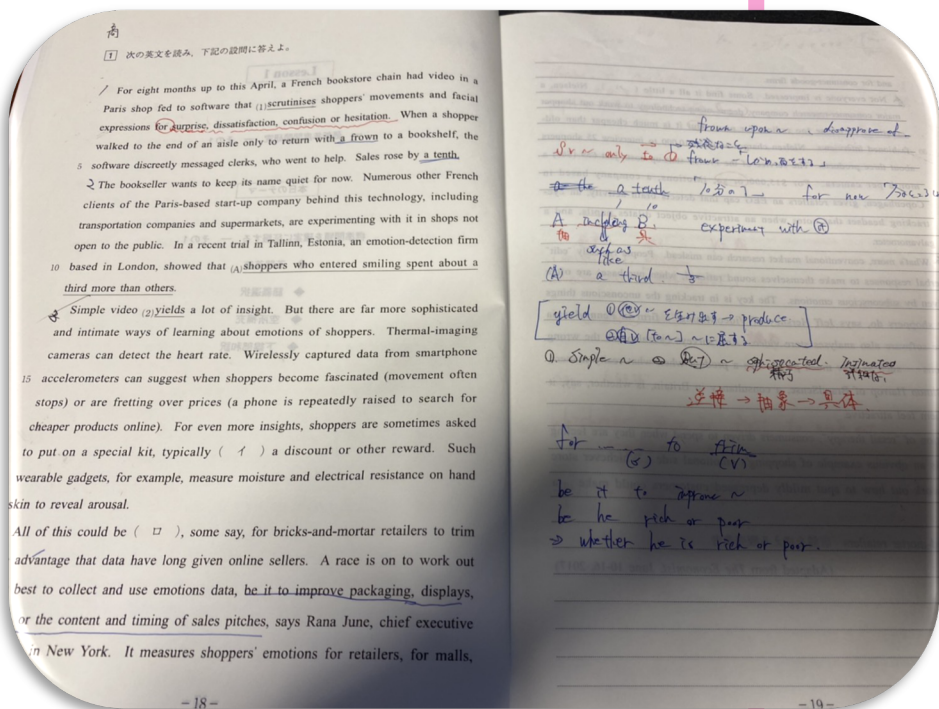 商
1 次の英文を読み、下記の設問に答えよ。
For eight months up to this April, a French bookstore chain had video in a
Paris shop fed to software that (1)scrutinises shoppers' movements and facial
expressions for surprise, dissatisfaction, confusion or hesitation. When a shopper
walked to the end of an aisle only to return with a frown to a bookshelf, the
5 software discreetly messaged clerks, who went to help. Sales rose by a tenth.
2 The bookseller wants to keep its name quiet for now. Numerous other French
clients of the Paris-based start-up company behind this technology, including
transportation companies and supermarkets, are experimenting with it in shops not
open to the public. In a recent trial in Tallinn, Estonia, an emotion-detection firm
10 based in London, showed that (A)shoppers who entered smiling spent about a
third more than others.
3 Simple video (2)yields a lot of insight. But there are far more sophisticated
and intimate ways of learning about emotions of shoppers. Thermal-imaging
cameras can detect the heart rate. Wirelessly captured data from smartphone
15 accelerometers can suggest when shoppers become fascinated (movement often
stops) or are fretting over prices (a phone is repeatedly raised to search for
cheaper products online). For even more insights, shoppers are sometimes asked
to put on a special kit, typically ( イ ) a discount or other reward. Such
wearable gadgets, for example, measure moisture and electrical resistance on hand
skin to reveal arousal.
All of this could be ( ロ ), some say, for bricks-and-mortar retailers to trim
advantage that data have long given online sellers. A race is on to work out
best to collect and use emotions data, be it to improve packaging, displays,
or the content and timing of sales pitches, says Rana June, chief executive
in New York. It measures shoppers' emotions for retailers, for malls,
- 18 -
frown upon ~ disapprove of
S V ~ only to
frown
a tenth 「10分の1」 for now
1 10
A including B experiment with
抽 具
such as
like
(A) a third 1/3
yield ① 他V ~ を生み出す → produce
② 自V [to ~] ~に屈する
①. Simple ~ But ~ sophisticated.
逆接 → 抽象 → 具体
for ... to trim
(S) (V)
be it to improve ~
be he rich or poor
⇒ whether he is rich or poor.
- 19 -